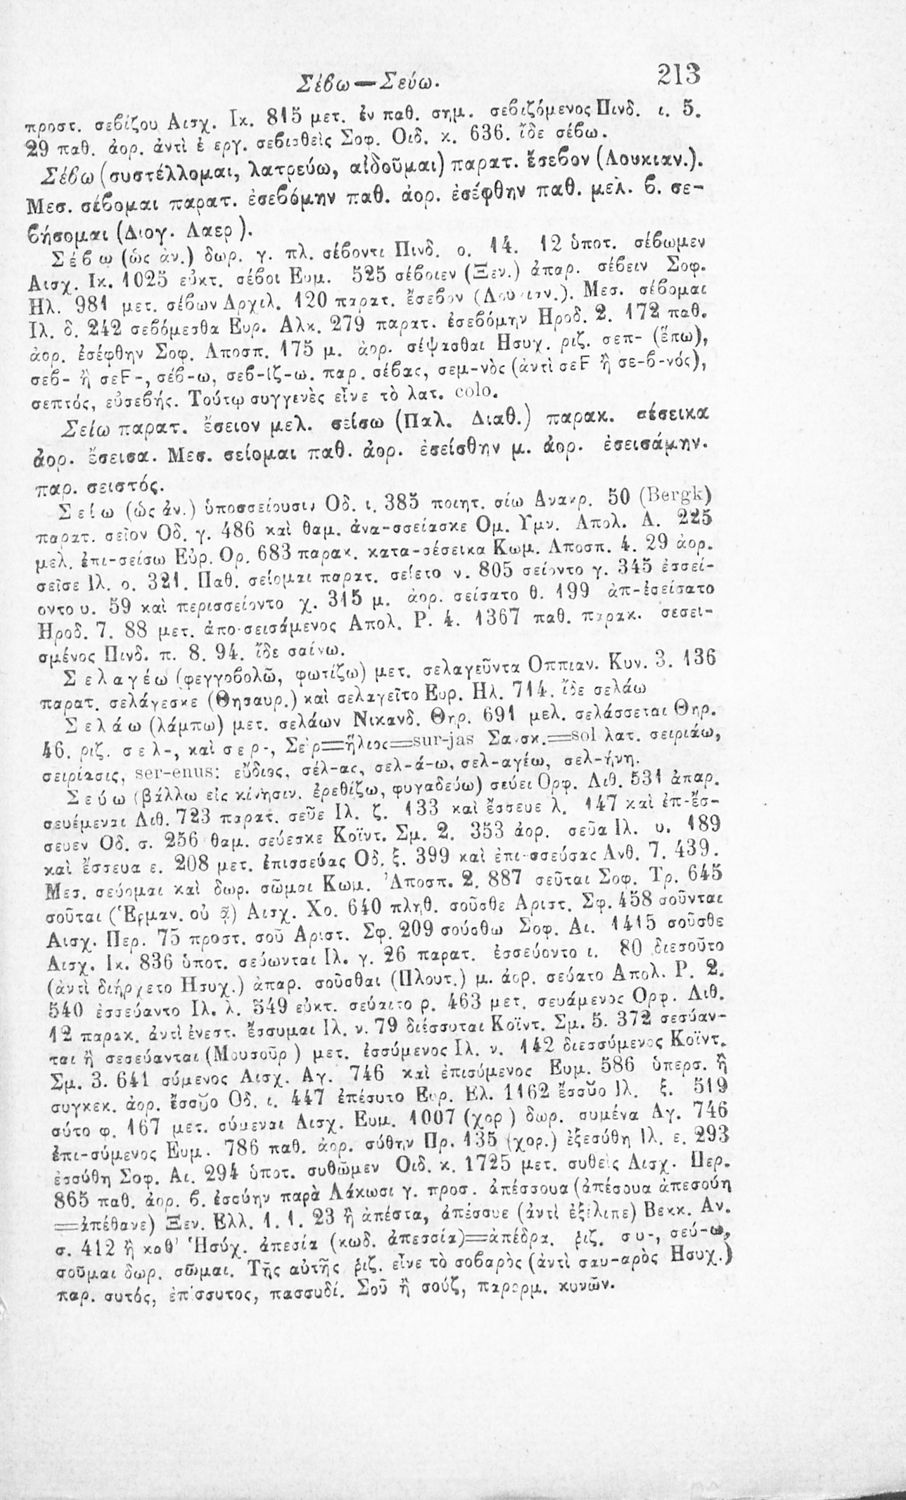 Σέβω—Σεύω. 213
προστ. σεβίζου Αισχ. Ικ. 815 μετ. ἐν παθ. σημ. σεβιζόμενος Πινδ. ι. 5.
29 παθ. ἀορ. ἀντὶ ἐ εργ. σεβισθεὶς Σοφ. Οιδ. κ. 636. ἴδε σέβω.
Σέβω (συστέλλομαι, λατρεύω, αἰδοῦμαι) παρατ. ἔσεβον (Λουκιαν.).
Μεσ. σέβομαι παρατ. ἐσεβόμην παθ. ἀορ. ἐσέφθην παθ. μελ. β. σε-
βήσομαι (Διογ. Λαερ ).
Σέβω (ὡς ἀν.) δωρ. γ. πλ. σέβοντι Πινδ. ο. 14. 12 ὑποτ. σέβωμεν
Αισχ. Ικ. 1025 εὐκτ. σέβοι Ευμ. 525 σέβοιεν (Ξεν.) ἀπαρ. σέβειν Σοφ.
Ηλ. 981 μετ. σέβων Αρχιλ. 120 παρατ. ἔσεβον (Λουκιαν.). Μεσ. σέβομαι
Ιλ. δ. 242 σεβόμεσθα Ευρ. Αλκ. 279 παρατ. ἐσεβόμην Ηροδ. 2. 172 παθ.
ἀορ. ἐσέφθην Σοφ. Αποσπ. 175 μ. ἀορ. σέψασθαι Ησυχ. ριζ. σεπ- (ἕπω),
σεβ- ἢ σεF-, σέβ-ω, σεβ-ίζ-ω. παρ. σέβας, σεμ-νὸς (ἀντὶ σεF ἢ σε-β-νός),
σεπτός, εὐσεβής. Τούτῳ συγγενὲς εἶνε τὸ λατ. colo.
Σείω παρατ. ἔσειον μελ. σείσω (Παλ. Διαθ.) παρακ. σέσεικα
ἀορ. ἔσεισα. Μεσ. σείομαι παθ. ἀορ. ἐσείσθην μ. ἀορ. ἐσεισάμην.
παρ. σειστός.
Σείω (ὡς ἀν.) ὑποσσείουσι Οδ. ι. 385 ποιητ. σίω Ανακρ. 50 (Bergk)
παρατ. σεῖον Οδ. γ. 486 καὶ θαμ. ἀνα-σσείασκε Ομ. Υμν. Απολ. Α. 225
μελ. ἐπι-σείσω Εὐρ. Ορ. 683 παρακ. κατα-σέσεικα Κωμ. Αποσπ. 4. 29 ἀορ.
σεῖσε Ιλ. ο. 321. Παθ. σείομαι παρατ. σείετο ν. 805 σείοντο γ. 345 ἐσσεί-
οντο υ. 59 καὶ περισσείοντο χ. 315 μ. ἀορ. σείσατο θ. 199 ἀπ-ἐσείσατο
Ηροδ. 7. 88 μετ. ἀπο-σεισάμενος Απολ. Ρ. 4. 1367 παθ. παρακ. σεσει-
σμένος Πινδ. π. 8. 94. ἴδε σαίνω.
Σελαγέω (φεγγοβολῶ, φωτίζω) μετ. σελαγεῦντα Οππιαν. Κυν. 3. 136
παρατ. σελάγεσκε (Θησαυρ.) καὶ σελαγεῖτο Ευρ. Ηλ. 714. ἴδε σελάω
Σελάω (λάμπω) μετ. σελάων Νικανδ. Θηρ. 691 μελ. σελάσσεται Θηρ.
46. ριζ. σελ-, καὶ σερ-, Σεὶρ=ἥλιος=sur-jas Σανσκ.=sol λατ. σειριάω,
σειρίασις, ser-enus: εὔδιος, σέλ-ας, σελ-ά-ω, σελ-αγέω, σελ-ήνη.
Σεύω (βάλλω εἰς κίνησιν, ἐρεθίζω, φυγαδεύω) σεύει Ορφ. Λιθ. 531 ἀπαρ.
σευέμεναι Λιθ. 723 παρατ. σεῦε Ιλ. ζ. 133 καὶ ἔσσευε λ. 147 καὶ ἐπ-ἔσ-
σευεν Οδ. σ. 256 θαμ. σεύεσκε Κοϊντ. Σμ. 2. 353 ἀορ. σεῦα Ιλ. υ. 189
καὶ ἔσσευα ε. 208 μετ. ἐπισσεύας Οδ. ξ. 399 καὶ ἐπι-σσεύσας Ανθ. 7. 439.
Μεσ. σεύομαι καὶ δωρ. σῶμαι Κωμ. Ἀποσπ. 2. 887 σεῦται Σοφ. Τρ. 645
σοῦται (Ἑρμαν. οὐ ᾷ) Αισχ. Χο. 640 πληθ. σοῦσθε Αριστ. Σφ. 458 σοῦνται
Αισχ. Περ. 75 προστ. σοῦ Αριστ. Σφ. 209 σούσθω Σοφ. Αι. 1415 σοῦσθε
Αισχ. Ικ. 836 ὑποτ. σεύωνται Ιλ. γ. 26 παρατ. ἐσσεύοντο ι. 80 διεσοῦτο
(ἀντὶ διήρχετο Ησυχ.) ἀπαρ. σοῦσθαι (Πλουτ.) μ. ἀορ. σεύατο Απολ. Ρ. 2.
540 ἐσσεύαντο Ιλ. λ. 549 εὐκτ. σεύαιτο ρ. 463 μετ. σευάμενος Ορφ. Λιθ.
12 παρακ. ἀντὶ ἐνεστ. ἔσσυμαι Ιλ. ν. 79 διέσσυται Κοϊντ. Σμ. 5. 372 σεσύαν-
ται ἢ σεσεύανται (Μουσοῦρ ) μετ. ἐσσύμενος Ιλ. ν. 142 διεσσύμενος Κοϊντ.
Σμ. 3. 641 σύμενος Αισχ. Αγ. 746 καὶ ἐπισύμενος Ευμ. 586 ὑπερσ. ἢ
συγκεκ. ἀορ. ἔσσυο Οδ. ι. 447 ἐπέσυτο Ευρ. Ελ. 1162 ἔσσυο Ιλ. ξ. 519
σύτο φ. 167 μετ. σύμεναι Αισχ. Ευμ. 1007 (χορ ) δωρ. συμένα Αγ. 746
ἐπι-σύμενος Ευμ. 786 παθ. ἀορ. σύθην Πρ. 135 (χορ.) ἐξεσύθη Ιλ. ε. 293
ἐσσύθη Σοφ. Αι. 294 ὑποτ. συθῶμεν Οιδ. κ. 1725 μετ. συθεὶς Αισχ. Περ.
865 παθ. ἀορ. β. ἐσσύην παρὰ Λάκωσι γ. προσ. ἀπέσσουα (ἀπέσουα ἀπεσούη
=ἀπέθανε) Ξεν. Ελλ. 1. 1. 23 ἢ ἀπέστα, ἀπέσσυε (ἀντὶ ἐξέλιπε) Βεκκ. Αν.
σ. 412 ἢ καθ' Ἡσύχ. ἀπεσία (κωδ. ἀπεσσία)=ἀπέδρα. ῥιζ. συ-, σεύ-ω,
σοῦμαι δωρ. σῶμαι. Τῆς αὐτῆς ῥιζ. εἶνε τὸ σοβαρὸς (ἀντὶ σαυ-αρὸς Ησυχ.)
παρ. συτός, ἐπίσσυτος, πασσυδί. Σοῦ ἢ σούζ, παρορμ. κυνῶν.